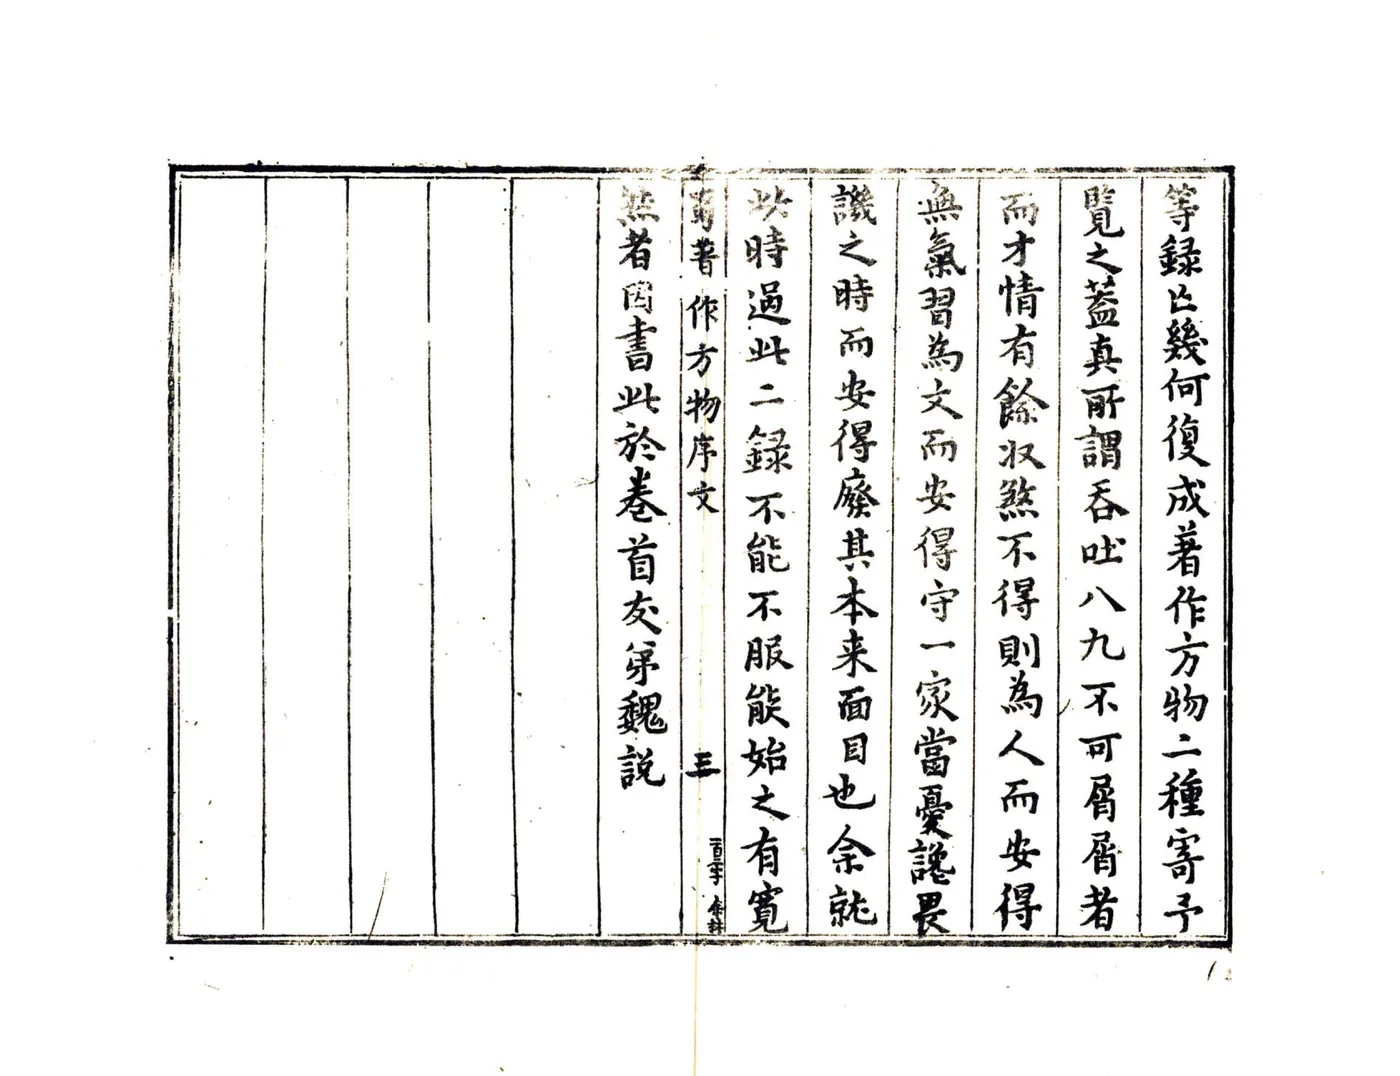 等録亡幾何復成著作方物二種寄予
覧之葢真所謂吞吐八九不可屑屑者
而才情有餘収煞不得則為人而安得
無氣習為文而安得守一家當憂讒畏
譏之時而安得廢其本来面目也余就
此時過此二録不能不服能始之有寛
蜀著作方物序文 三
然者因書此於卷首友弟魏説